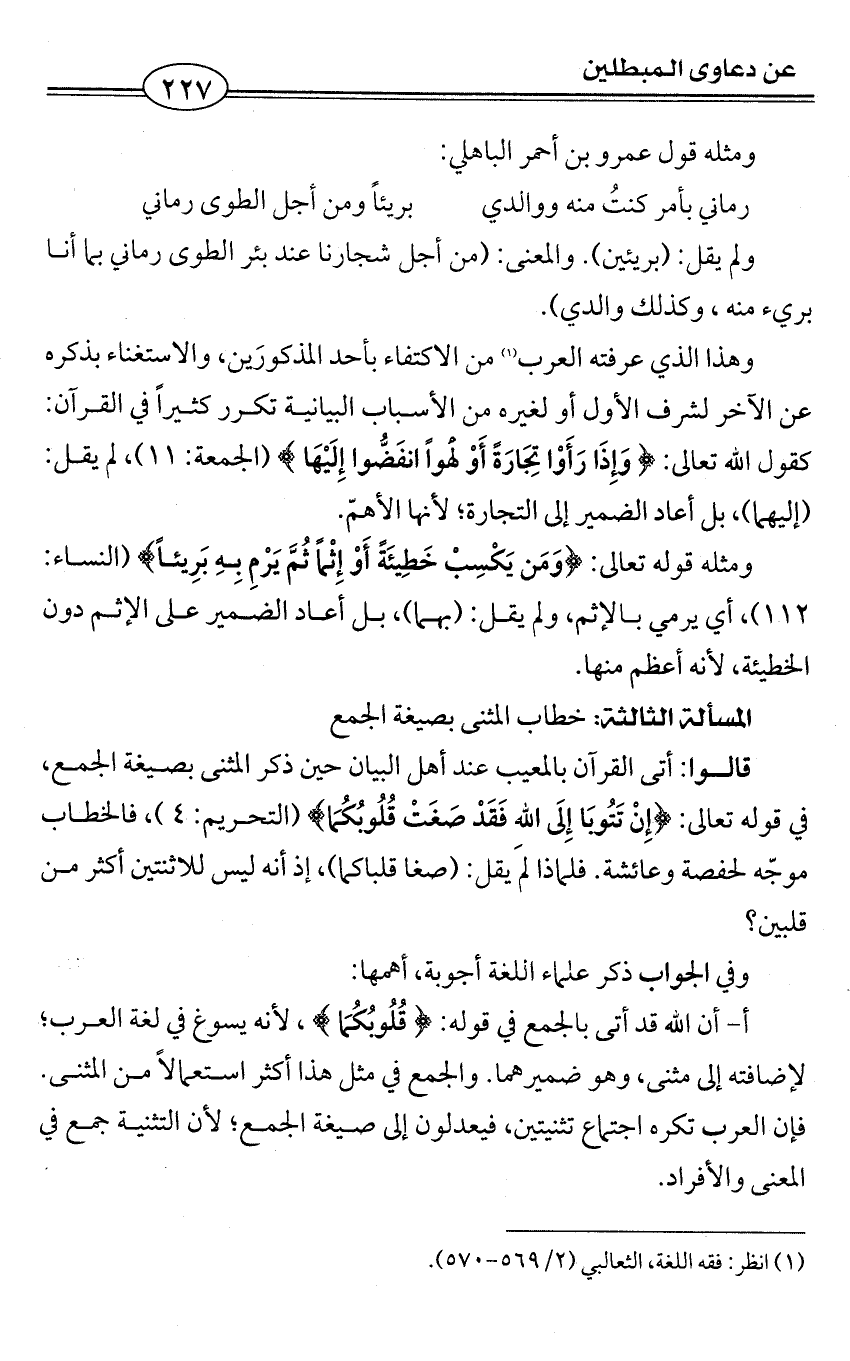 عن دعاوى المبطلين
٢٢٧
ومثله قول عمرو بن أحمر الباهلي:
رماني بأمر كنتُ منه ووالدي بريئاً ومن أجل الطوى رماني
ولم يقل: (بريئين). والمعنى: (من أجل شجارنا عند بئر الطوى رماني بما أنا
بريء منه ، وكذلك والدي).
وهذا الذي عرفته العرب(١) من الاكتفاء بأحد المذكورَين، والاستغناء بذكره
عن الآخر لشرف الأول أو لغيره من الأسباب البيانية تكرر كثيراً في القرآن:
كقول الله تعالى: ﴿ وَإِذَا رَأَوْا تِجَارَةً أَوْ لَهْواً انفَضُّوا إِلَيْهَا ﴾ (الجمعة: ١١)، لم يقل:
(إليهما)، بل أعاد الضمير إلى التجارة؛ لأنها الأهمّ.
ومثله قوله تعالى: ﴿وَمَن يَكْسِبْ خَطِيئَةً أَوْ إِثْماً ثُمَّ يَرْمِ بِهِ بَرِيئاً﴾ (النساء:
١١٢)، أي يرمي بالإثم، ولم يقل: (بهما)، بل أعاد الضمير على الإثم دون
الخطيئة، لأنه أعظم منها.
المسألة الثالثة: خطاب المثنى بصيغة الجمع
قالوا: أتى القرآن بالمعيب عند أهل البيان حين ذكر المثنى بصيغة الجمع،
في قوله تعالى: ﴿إِنْ تَتُوبَا إِلَى اللهِ فَقَدْ صَغَتْ قُلُوبُكُمَا﴾ (التحريم: ٤ )، فالخطاب
موجّه لحفصة وعائشة. فلماذا لم يقل: (صغا قلباكما)، إذ أنه ليس للاثنتين أكثر من
قلبين؟
وفي الجواب ذكر علماء اللغة أجوبة، أهمها:
أ- أن الله قد أتى بالجمع في قوله: ﴿ قُلُوبُكُمَا ﴾ ، لأنه يسوغ في لغة العرب؛
لإضافته إلى مثنى، وهو ضميرهما. والجمع في مثل هذا أكثر استعمالاً من المثنى.
فإن العرب تكره اجتماع تثنيتين، فيعدلون إلى صيغة الجمع؛ لأن التثنية جمع في
المعنى والأفراد.
(١) انظر: فقه اللغة، الثعالبي (٢/ ٥٦٩-٥٧٠).